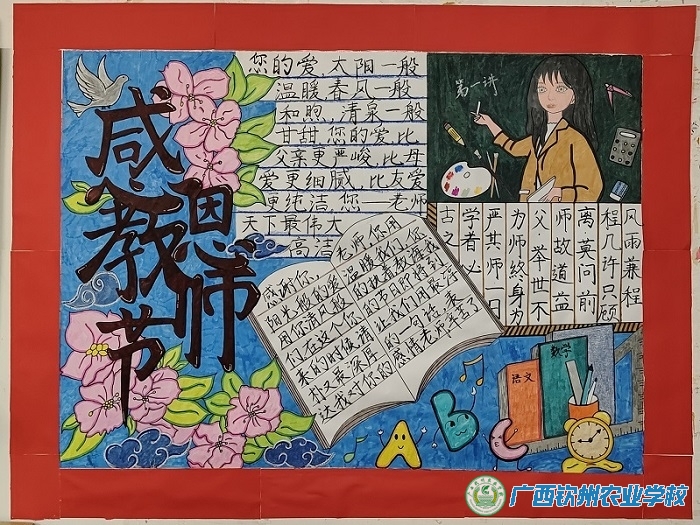 感恩教师节
您的爱,太阳一般
温暖春风一般
和煦,清泉一般
甘甜您的爱比
父亲更严峻,比母
爱更细腻,比友爱
更纯洁,您一老师
天下最伟大
高洁
第一讲
风雨兼程
程几许只顾
离莫问前
师故道益
父举世不
为师终身为
严其师一日
学者必
古之
感谢你,老师,您用
阳光般的爱温暖我们,您
用你清风般的执着教诲我
们,在这个你的节日即将到
来的时候,请让我们用最淳
朴又最深厚的一句话,来
达我对你的感情老师辛苦了
语文
数学
A B C
广西钦州农业学校